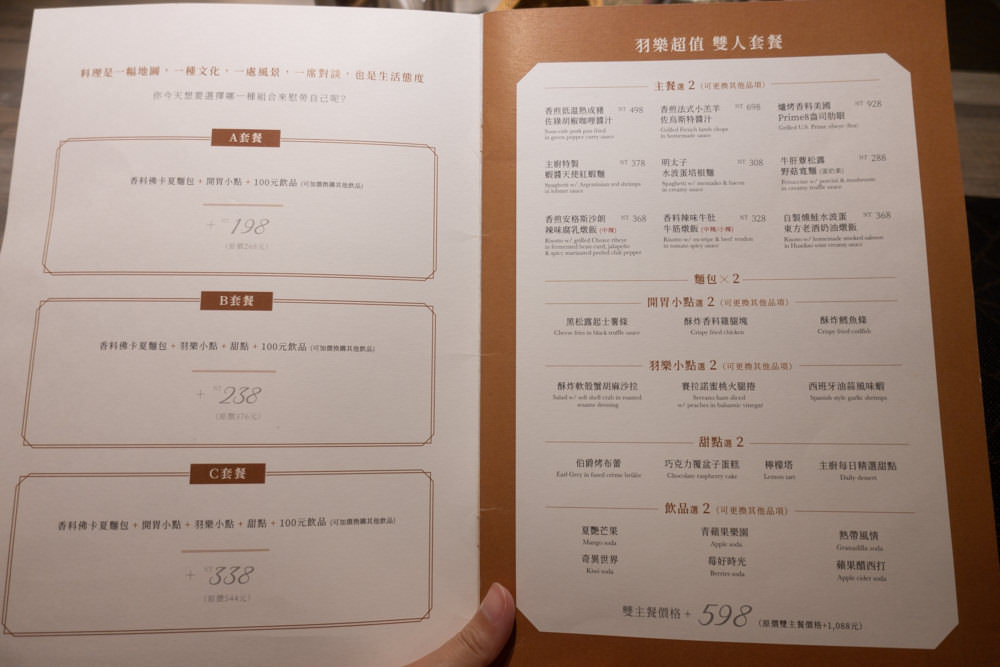 料理是一幅地圖，一種文化，一處風景，一席對談，也是生活態度
你今天想要選擇哪一種組合來慰勞自己呢？
A套餐
香料佛卡夏麵包 + 開胃小點 + 100元飲品 (可加價換購其他飲品)
+ NT 198
(原價268元)
B套餐
香料佛卡夏麵包 + 羽樂小點 + 甜點 + 100元飲品 (可加價換購其他飲品)
+ NT 238
(原價376元)
C套餐
香料佛卡夏麵包 + 開胃小點 + 羽樂小點 + 甜點 + 100元飲品 (可加價換購其他飲品)
+ NT 338
(原價544元)
羽樂超值 雙人套餐
主餐選 2 (可更換其他品項)
香煎低溫熟成豬 NT 498
佐綠胡椒咖哩醬汁
Sous-vide pork pan fried
in green pepper curry sauce
香煎法式小羔羊 NT 698
佐烏斯特醬汁
Grilled French lamb chops
in homemade sauce
爐烤香料美國 NT 928
Prime8盎司肋眼
Grilled U.S. Prime ribeye (8oz)
主廚特製 NT 378
蝦醬天使紅蝦麵
Spaghetti w/ Argentinian red shrimps
in lobster sauce
明太子 NT 308
水波蛋培根麵
Spaghetti w/ mentaiko & bacon
in creamy sauce
牛肝蕈松露 NT 288
野菇寬麵 (蛋奶素)
Fettuccine w/ porcini & mushrooms
in creamy truffle sauce
香煎安格斯沙朗 NT 368
辣味腐乳燉飯 (中辣)
Risotto w/ grilled Choice ribeye
in fermented bean curd, jalapeño
& spicy marinated peeled chili pepper
香料辣味牛肚 NT 328
牛筋燉飯 (中辣/小辣)
Risotto w/ ox-tripe & beef tendon
in tomato spicy sauce
自製燻鮭水波蛋 NT 368
東方老酒奶油燉飯
Risotto w/ homemade smoked salmon
in Huadiao wine creamy sauce
麵包 × 2
開胃小點選 2 (可更換其他品項)
黑松露起士薯條
Cheese fries in black truffle sauce
酥炸香料雞腿塊
Crispy fried chicken
酥炸鱈魚條
Crispy fried codfish
羽樂小點選 2 (可更換其他品項)
酥炸軟殼蟹胡麻沙拉
Salad w/ soft shell crab in roasted
sesame dressing
賽拉諾蜜桃火腿捲
Serrano ham sliced
w/ peaches in balsamic vinegar
西班牙油蒜風味蝦
Spanish style garlic shrimps
甜點選 2
伯爵烤布蕾
Earl Grey in fused crème brûlée
巧克力覆盆子蛋糕
Chocolate raspberry cake
檸檬塔
Lemon tart
主廚每日精選甜點
Daily dessert
飲品選 2 (可更換其他品項)
夏艷芒果
Mango soda
青蘋果樂園
Apple soda
熱帶風情
Granadilla soda
奇異世界
Kiwi soda
莓好時光
Berries soda
蘋果醋西打
Apple cider soda
雙主餐價格 + 598 (原價雙主餐價格+1,088元)